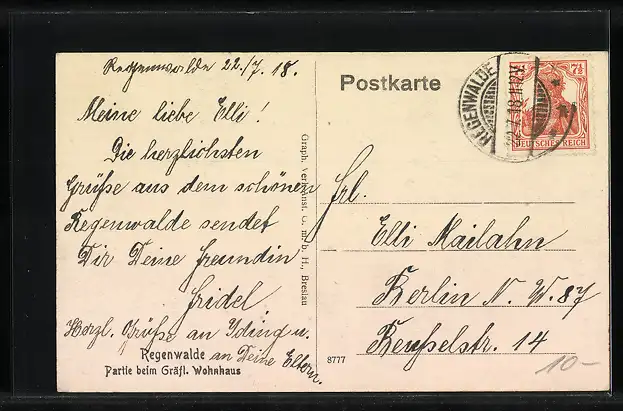 Regenwalde 22./7. 18.
Meine liebe Elli!
Die herzlichsten
Grüße aus dem schönen
Regenwalde sendet
Dir Deine Freundin
Fridel
Herzl. Grüße an u.
an Deine Eltern.
Regenwalde
Partie beim Gräfl. Wohnhaus
Graph. Verl. Anst. G. m. b. H., Breslau
Postkarte
REGENWALDE
7½
DEUTSCHES REICH
Frl.
Elli Mailahn
Berlin N. W. 87
Beusselstr. 14
8777
10-